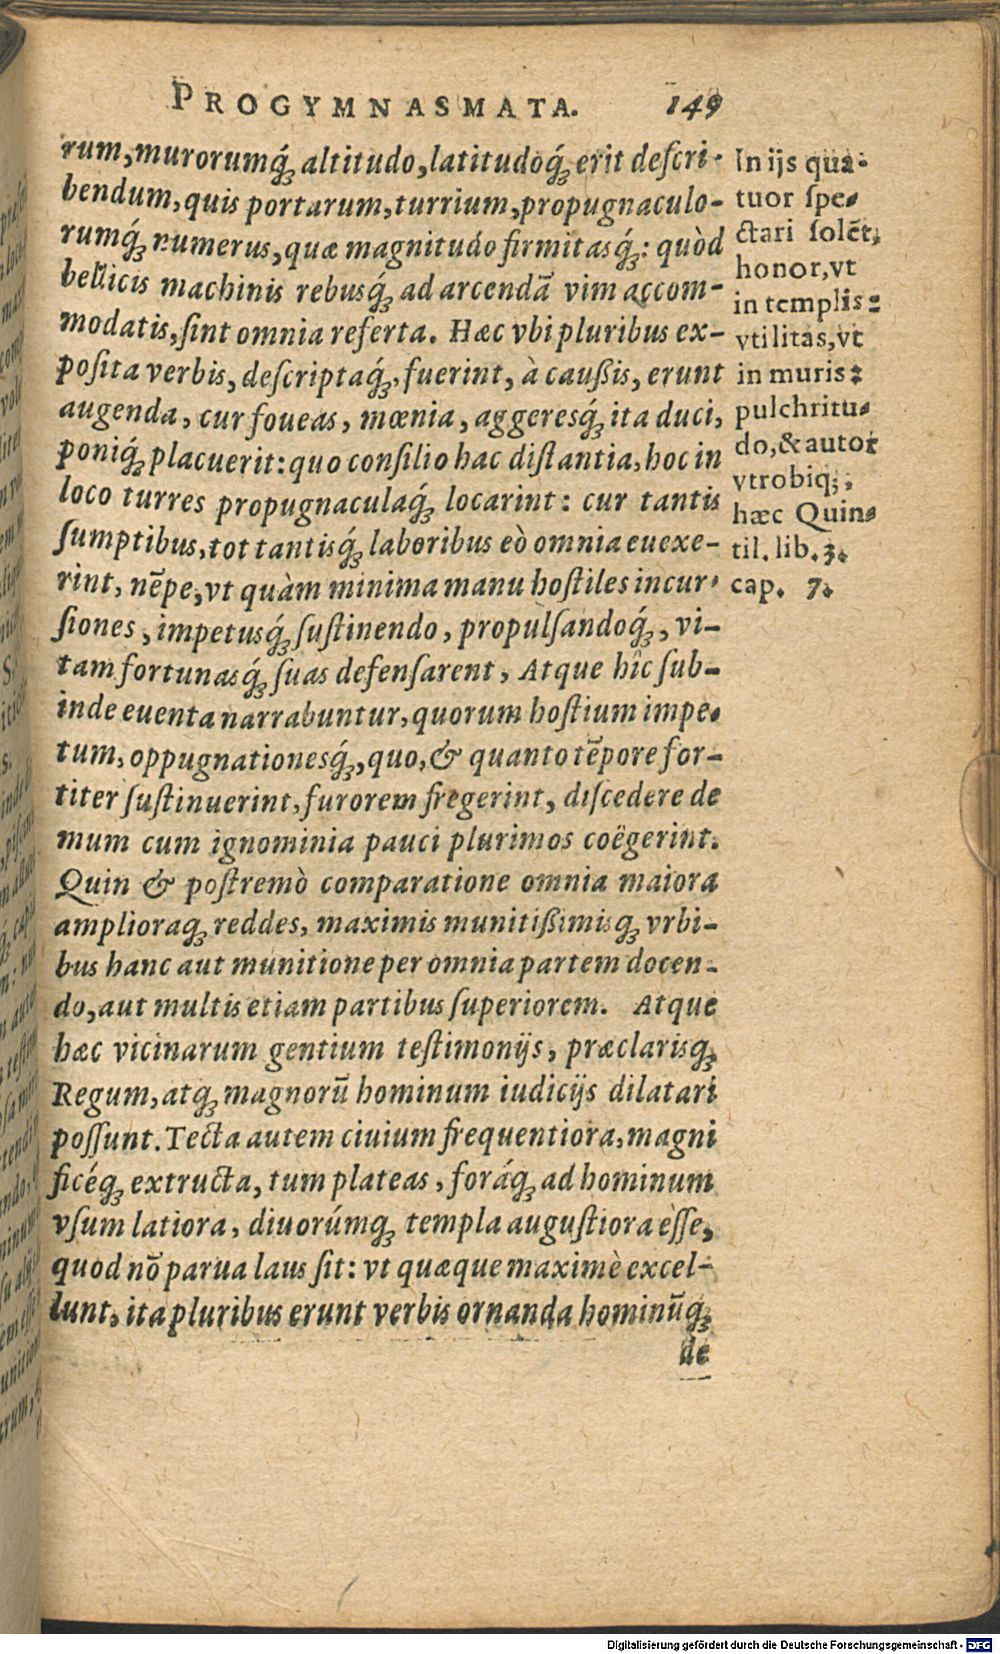 PROGYMNASMATA. 149
rum, murorumq́ꝫ altitudo, latitudoq́ꝫ erit deſcri-
bendum, quis portarum, turrium, propugnaculo-
rumq́ꝫ numerus, quæ magnitudo firmitasq́ꝫ: quòd
bellicis machinis rebusq́ꝫ ad arcendā vim accom-
modatis, ſint omnia referta. Hæc vbi pluribus ex-
poſita verbis, deſcriptaq́ꝫ, fuerint, à caußis, erunt
augenda, cur foueas, mœnia, aggeresq́ꝫ ita duci,
poniq́ꝫ placuerit: quo conſilio hac diſtantia, hoc in
loco turres propugnaculaq́ꝫ locarint: cur tantis
ſumptibus, tot tantisq́ꝫ laboribus eò omnia euexe-
rint, nēpe, vt quàm minima manu hoſtiles incur-
ſiones, impetusq́ꝫ ſuſtinendo, propulſandoq́ꝫ, vi-
tam fortunasq́ꝫ ſuas defenſarent, Atque hîc ſub-
inde euenta narrabuntur, quorum hoſtium impe-
tum, oppugnationesq́ꝫ, quo, & quanto tēpore for-
titer ſuſtinuerint, furorem fregerint, diſcedere de
mum cum ignominia pauci plurimos coëgerint.
Quin & poſtremò comparatione omnia maiora
amplioraqꝫ reddes, maximis munitißimisqꝫ vrbi-
bus hanc aut munitione per omnia partem docen-
do, aut multis etiam partibus ſuperiorem. Atque
hæc vicinarum gentium teſtimonijs, præclarisqꝫ
Regum, atqꝫ magnorū hominum iudicijs dilatari
poſſunt. Tecta autem ciuium frequentiora, magni
ficéqꝫ extructa, tum plateas, foráqꝫ ad hominum
vſum latiora, diuorúmqꝫ templa auguſtiora eſſe,
quod nō parua laus ſit: vt quæque maximè excel-
lunt, ita pluribus erunt verbis ornanda hominūqꝫ
de
In ijs qua-
tuor ſpe-
ctari ſolēt,
honor, vt
in templis:
vtilitas, vt
in muris:
pulchritu-
do, & autor
vtrobiq;,
hæc Quin-
til. lib. 3.
cap. 7.
Digitalisierung gefördert durch die Deutsche Forschungsgemeinschaft - DFG